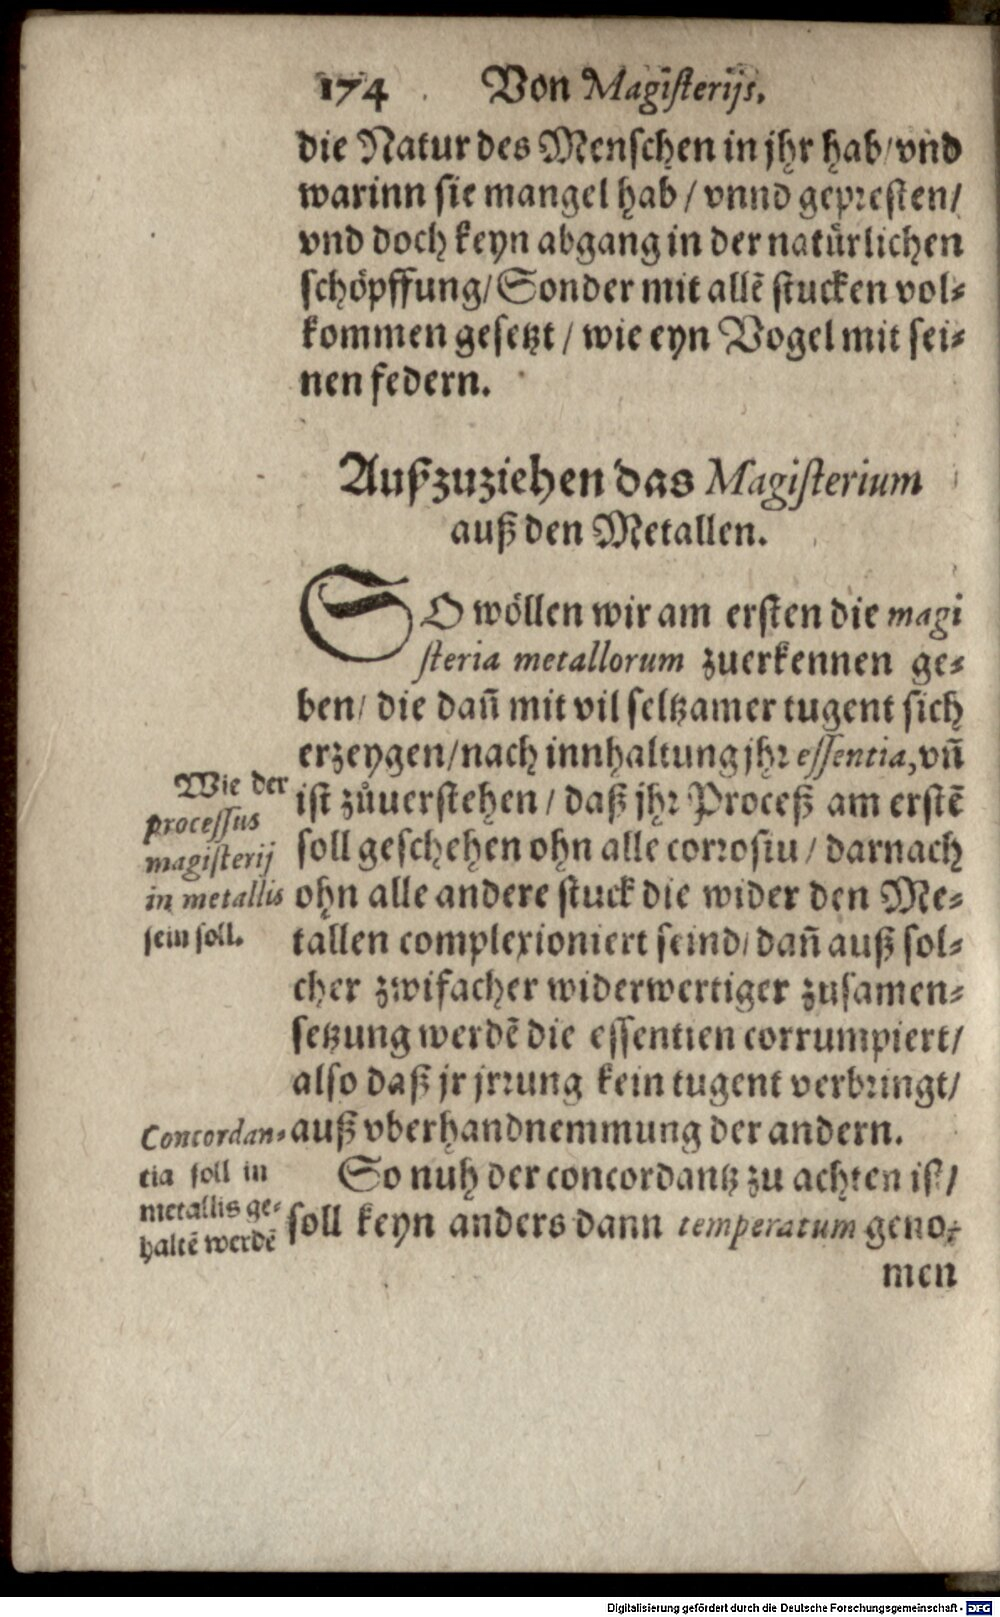 174 Von Magisterijs.
die Natur des Menschen in jhr hab/ vnd
warinn sie mangel hab / vnnd gepresten/
vnd doch keyn abgang in der natürlichen
schöpffung/ Sonder mit allē stucken vol-
kommen gesetzt / wie eyn Vogel mit sei-
nen federn.
Außzuziehen das Magisterium
auß den Metallen.
SO wöllen wir am ersten die magi
steria metallorum zuerkennen ge-
ben/ die dañ mit vil seltzamer tugent sich
erzeygen/ nach innhaltung jhr essentia, vñ
ist zůuerstehen / daß jhr Proceß am erstē
soll geschehen ohn alle corrosiu / darnach
ohn alle andere stuck die wider den Me-
tallen complexioniert seind/ dañ auß sol-
cher zwifacher widerwertiger zusamen-
setzung werdē die essentien corrumpiert/
also daß jr jrrung kein tugent verbringt/
auß vberhandnemmung der andern.
So nuh der concordantz zu achten ist/
soll keyn anders dann temperatum geno-
men
Wie der
processus
magisterij
in metallis
sein soll.
Concordan-
tia soll in
metallis ge-
haltē werdē
Digitalisierung gefördert durch die Deutsche Forschungsgemeinschaft - DFG